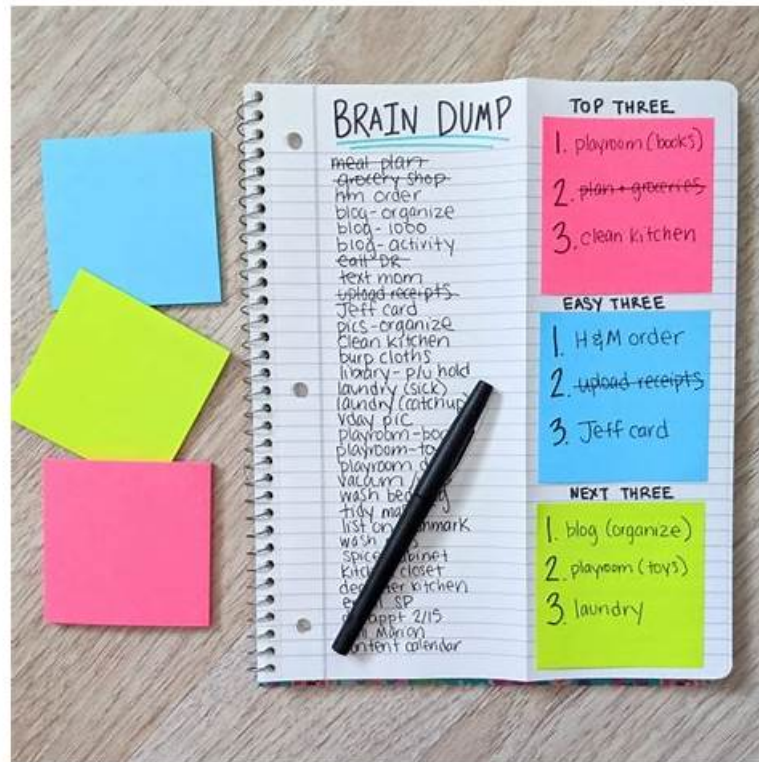 BRAIN DUMP
meal plan
grocery shop
hm order
blog-organize
blog-1000
blog-activity
call DR
text mom
upload receipts
Jeff card
pics-organize
clean kitchen
burp cloths
library-p/u hold
laundry (sick)
laundry (catchup)
vday pic
playroom-boo
playroom-to
playroom
vacuum
wash
tidy
list on
wash
spice
closet
kitchen
SP
appt 2/15
Marion
calendar
TOP THREE
1. playroom (books)
2. plan + groceries
3. clean kitchen
EASY THREE
1. H&M order
2. upload receipts
3. Jeff card
NEXT THREE
1. blog (organize)
2. playroom (toys)
3. laundry